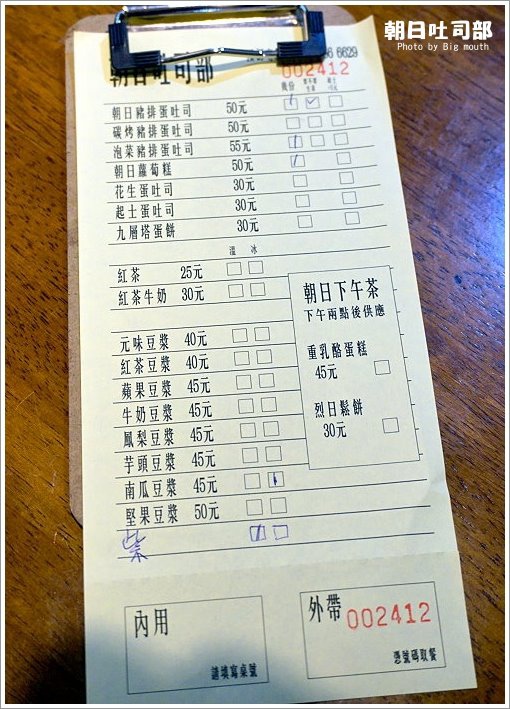 朝日吐司部
Photo by Big mouth
朝日吐司部
6629
002412
朝日豬排蛋吐司 50元
碳烤豬排蛋吐司 50元
泡菜豬排蛋吐司 55元
朝日蘿蔔糕 50元
花生蛋吐司 30元
起士蛋吐司 30元
九層塔蛋餅 30元
溫 冰
紅茶 25元
紅茶牛奶 30元
朝日下午茶
下午兩點後供應
重乳酪蛋糕
45元
烈日鬆餅
30元
元味豆漿 40元
紅茶豆漿 40元
蘋果豆漿 45元
牛奶豆漿 45元
鳳梨豆漿 45元
芋頭豆漿 45元
南瓜豆漿 45元
堅果豆漿 50元
紫
內用
請填寫桌號
外帶 002412
憑號碼取餐